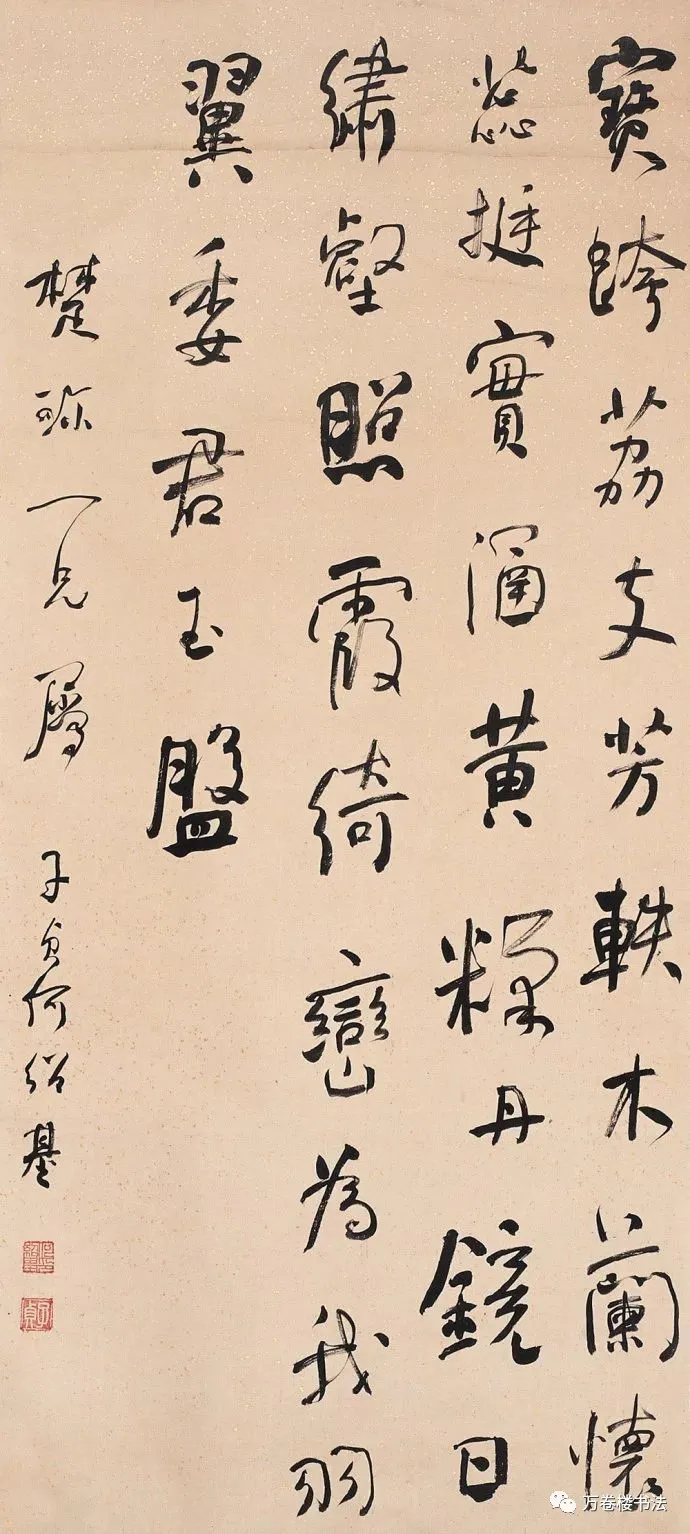 寶跨荔支芳軼木蘭懷
蕊挺實涵黄糅丹鏡日
繡壑照霞綺巒為我羽
翼委君玉盤
楚珎一兄屬 子貞何紹基
子貞
万卷楼书法